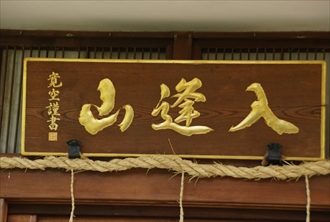 入逢山
寛空謹書